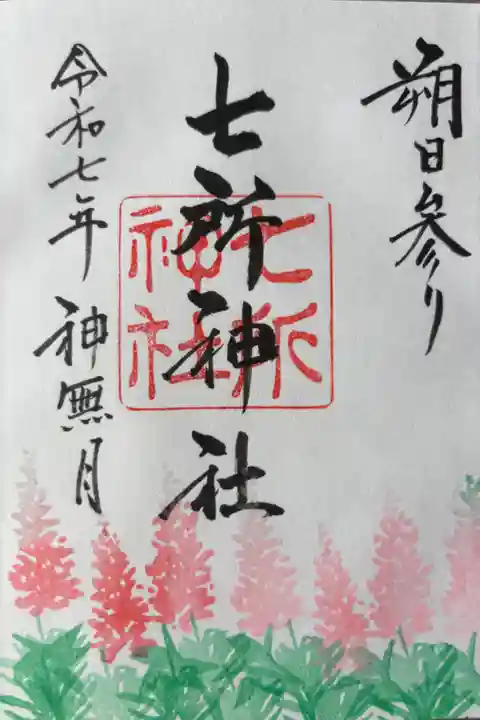 朔日参り
七所神社
七所
神社
令和七年 神無月